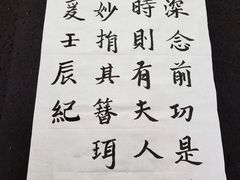 深念前功是
時則有夫人
妙捐其簪珥
爰壬辰紀